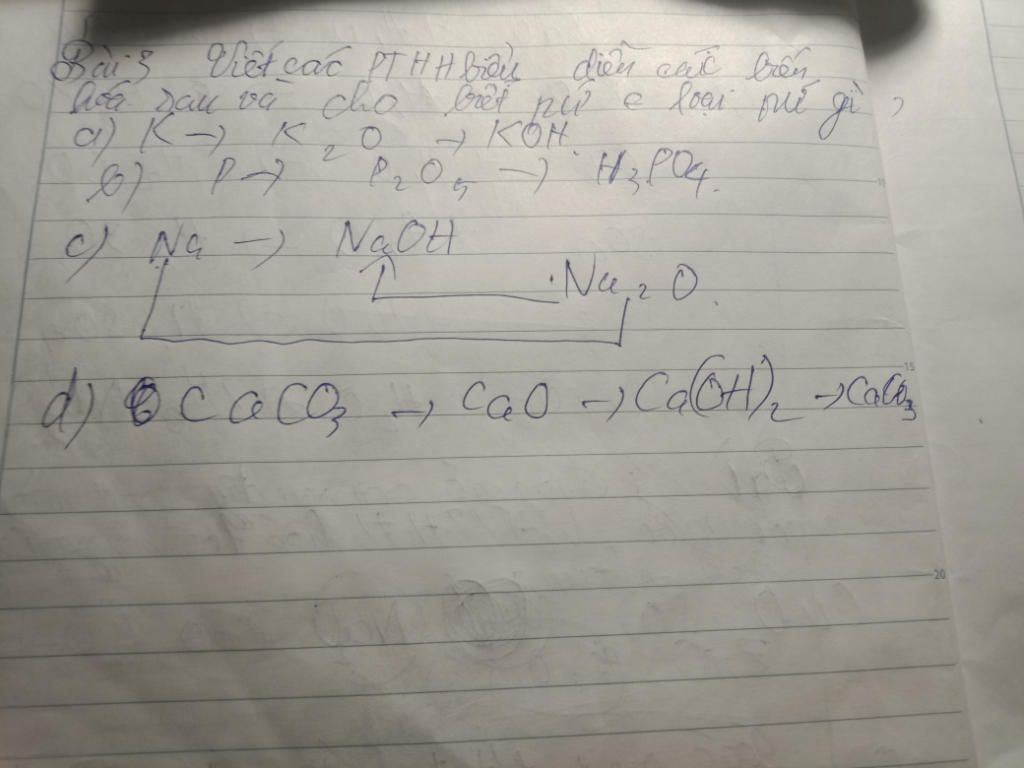 Bài 3 Viết các PTHH biểu diễn các biến
hoá sau và cho biết pứ € loại pứ gì ?
a) K → K2O → KOH.
b) P → P2O5 → H3PO4.
c) Na → NaOH
Na2O.
d) CaCO3 → CaO → Ca(OH)2 → CaCO3
15
20